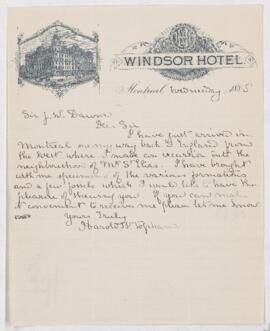 WINDSOR HOTEL
Montreal Wednesday 1885
Sir J. W. Dawson
Dear Sir
I have just arrived in
Montreal on my way back to England from
the West where I made an excursion into the
neighbourhood of Mt St Elias. I have brought
with me specimens of the various formations
and a few fossils which I would like to have the
pleasure of showing you. If you can make
it convenient to receive me please let me know
Yours truly
Harold W Topham